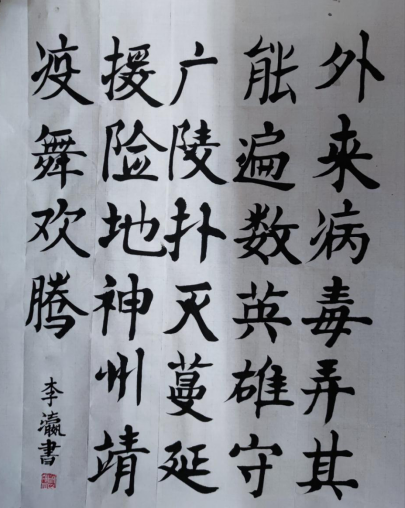 外来病毒弄其
能遍数英雄守
广陵扑灭蔓延
援险地神州靖
疫舞欢腾
李瀛書